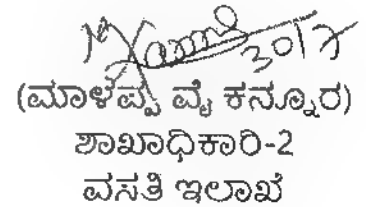 30/7
(ಮಾಳಪ್ಪ ವೈ ಕನ್ನೂರ)
ಶಾಖಾಧಿಕಾರಿ-2
ವಸತಿ ಇಲಾಖೆ